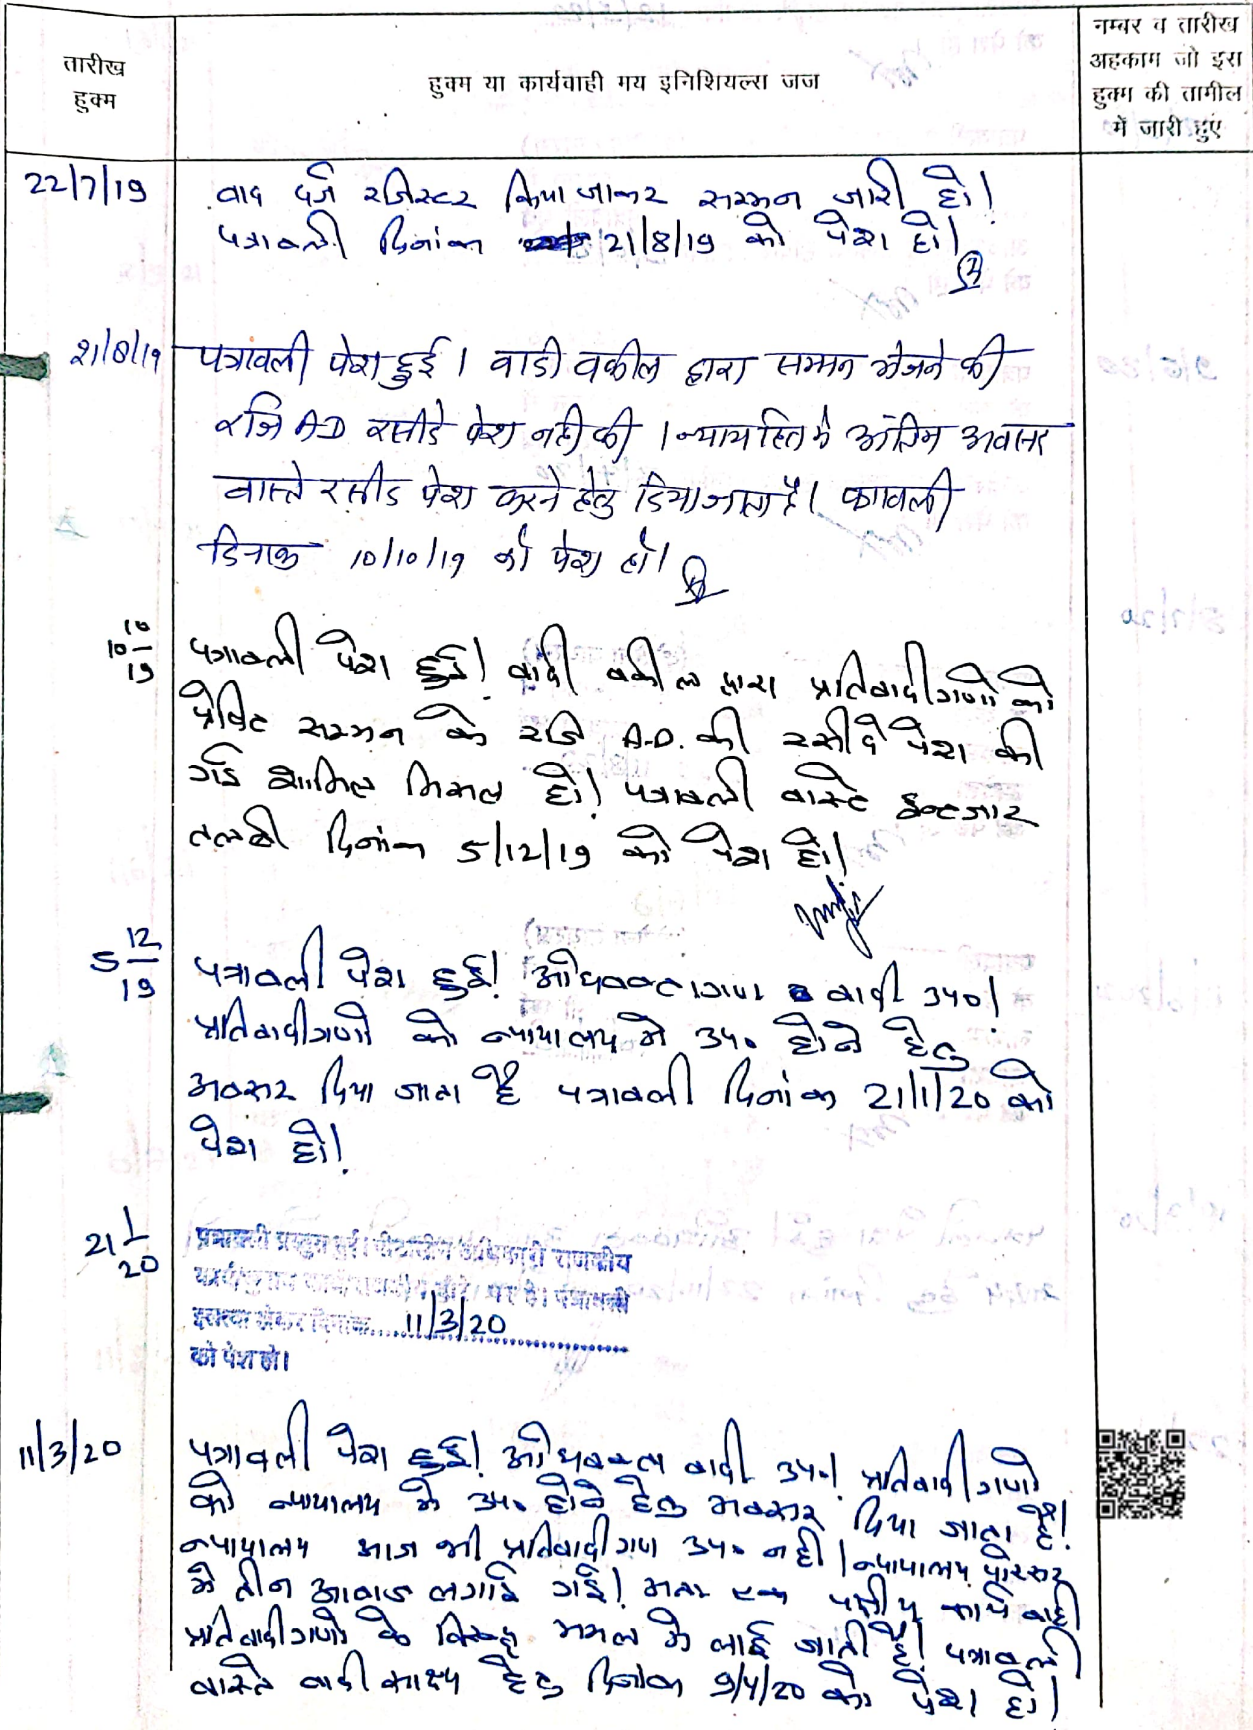 तारीख
हुक्म
हुक्म या कार्यवाही मय इनिशियल्स जज
नम्बर व तारीख
अहकाम जो इस
हुक्म की तामील
में जारी हुए
22/7/19
वाद दर्ज रजिस्टर किया जाकर सम्मन जारी हो!
पत्रावली दिनांक 21/8/19 को पेश हो!
21/8/19
पत्रावली पेश हुई। वादी वकील द्वारा सम्मन भेजने की
रजि AD रसीदे पेश नही की । न्यायहित मे अंतिम अवसर
वास्ते रसीद पेश करने हेतु दिया जाता है। पत्रावली
दिनांक 10/10/19 को पेश हो।
10 10/19
पत्रावली पेश हुई! वादी वकील द्वारा प्रतिवादीगणो को
प्रेषित सम्मन के रजि A.D. की रसीदे पेश की
गई शामिल मिसल हो! पत्रावली वास्ते इन्तजार
तलबी दिनांक 5/12/19 को पेश हो!
5 12/19
पत्रावली पेश हुई! अधिवक्तागण वादी उप0!
प्रतिवादीगणो को न्यायालय मे उप० होने हेतु
अवसर दिया जाता है पत्रावली दिनांक 21/1/20 को
पेश हो!
21 1/20
पत्रावली प्रस्तुत हुई। पीठासीन अधिकारी राजकीय
दौरे पर है। पत्रावली
दिनांक.... 11/3/20
को पेश हो।
11/3/20
पत्रावली पेश हुई! अधिवक्ता वादी उप०! प्रतिवादीगणो
को न्यायालय मे उप० होने हेतु अवसर दिया जाता है!
न्यायालय आज भी प्रतिवादीगण उप० नही। न्यायालय परिसर
मे तीन आवाज लगाई गई! अतः एक पक्षीय कार्यवाही
प्रतिवादीगणो के विरूद्ध अमल मे लाई जाती है! पत्रावली
वास्ते वादी साक्ष्य हेतु दिनांक 9/4/20 को पेश हो।